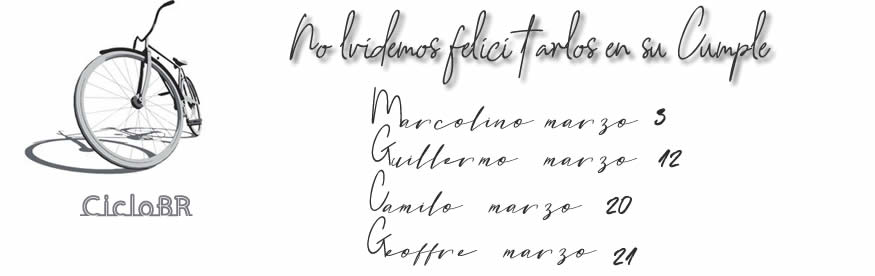 No lvidemos felicitarlos en su Cumple
Marcolino marzo 3
Guillermo marzo 12
Camilo marzo 20
Geoffre marzo 21
CicloBR